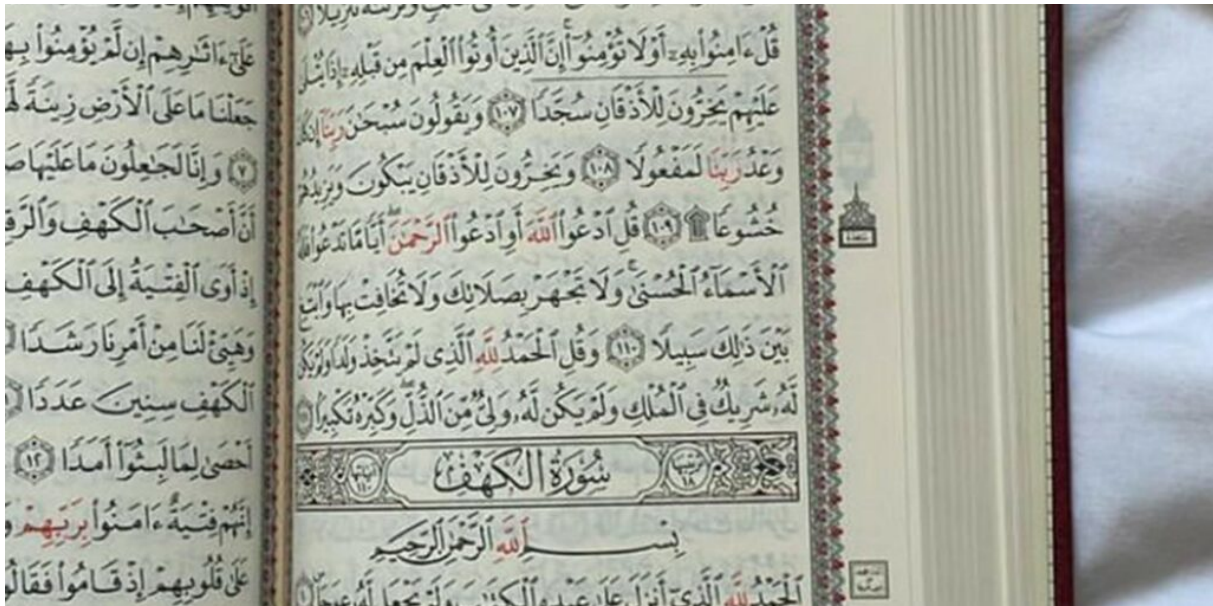 مُكْثٍ وَنَزَّلْنَٰهُ تَنزِيلًا
قُلْ ءَامِنُوا۟ بِهِۦٓ أَوْ لَا تُؤْمِنُوٓا۟ ۚ إِنَّ ٱلَّذِينَ أُوتُوا۟ ٱلْعِلْمَ مِن قَبْلِهِۦٓ إِذَا يُتْلَىٰ
عَلَيْهِمْ يَخِرُّونَ لِلْأَذْقَانِ سُجَّدًا ١٠٧ وَيَقُولُونَ سُبْحَٰنَ رَبِّنَآ إِن كَانَ
وَعْدُ رَبِّنَا لَمَفْعُولًا ١٠٨ وَيَخِرُّونَ لِلْأَذْقَانِ يَبْكُونَ وَيَزِيدُهُمْ
خُشُوعًا ۩ ١٠٩ قُلِ ٱدْعُوا۟ ٱللَّهَ أَوِ ٱدْعُوا۟ ٱلرَّحْمَٰنَ ۖ أَيًّا مَّا تَدْعُوا۟ فَلَهُ
ٱلْأَسْمَآءُ ٱلْحُسْنَىٰ ۚ وَلَا تَجْهَرْ بِصَلَاتِكَ وَلَا تُخَافِتْ بِهَا وَٱبْتَغِ
بَيْنَ ذَٰلِكَ سَبِيلًا ١١٠ وَقُلِ ٱلْحَمْدُ لِلَّهِ ٱلَّذِى لَمْ يَتَّخِذْ وَلَدًا وَلَمْ يَكُن
لَّهُۥ شَرِيكٌ فِى ٱلْمُلْكِ وَلَمْ يَكُن لَّهُۥ وَلِىٌّ مِّنَ ٱلذُّلِّ ۖ وَكَبِّرْهُ تَكْبِيرًۢا ١١١
ترتيبها ١٨ سُورَةُ الكَهْفِ آياتها ١١٠
بِسْمِ ٱللَّهِ ٱلرَّحْمَٰنِ ٱلرَّحِيمِ
ٱلْحَمْدُ لِلَّهِ ٱلَّذِىٓ أَنزَلَ عَلَىٰ عَبْدِهِ ٱلْكِتَٰبَ وَلَمْ يَجْعَل لَّهُۥ عِوَجَا ١
سجدة
عَلَىٰٓ ءَاثَٰرِهِمْ إِن لَّمْ يُؤْمِنُوا۟ بِهَ
جَعَلْنَا مَا عَلَى ٱلْأَرْضِ زِينَةً لَّهَ
٧ وَإِنَّا لَجَٰعِلُونَ مَا عَلَيْهَا صَ
أَنَّ أَصْحَٰبَ ٱلْكَهْفِ وَٱلرَّقِ
إِذْ أَوَى ٱلْفِتْيَةُ إِلَى ٱلْكَهْفِ
وَهَيِّئْ لَنَا مِنْ أَمْرِنَا رَشَدًا
ٱلْكَهْفِ سِنِينَ عَدَدًا
أَحْصَىٰ لِمَا لَبِثُوٓا۟ أَمَدًا ١٢
إِنَّهُمْ فِتْيَةٌ ءَامَنُوا۟ بِرَبِّهِمْ وَ
عَلَىٰ قُلُوبِهِمْ إِذْ قَامُوا۟ فَقَالُو